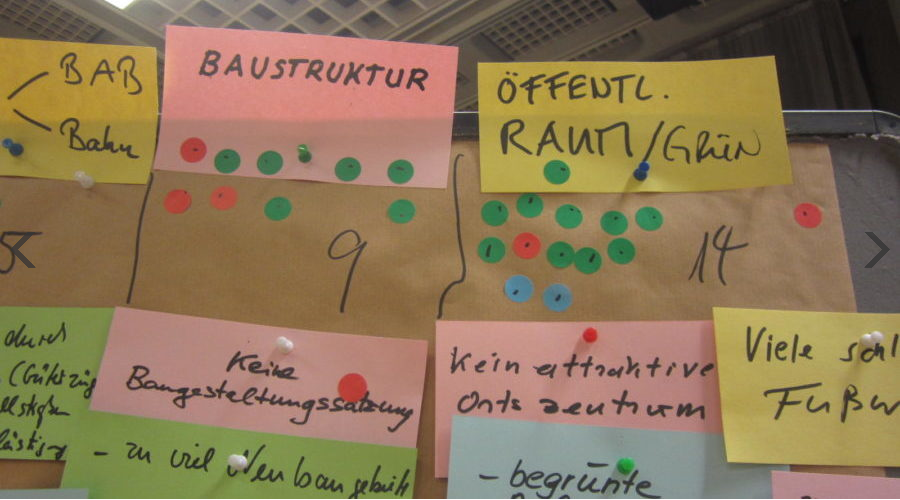 BAB
Bahn
BAUSTRUKTUR
ÖFFENTL.
RAUM/GRÜN
9
14
durch
Keine
Baugestaltungssatzung
- zu viel Neubaugebiete
Kein attraktives
Ortszentrum
- begrünte
Viele